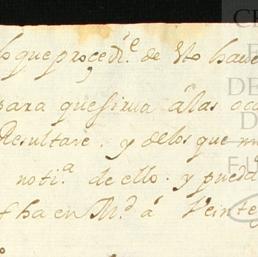 lo que procedie. de sto haue
para que sirua a las oca
Resultare. y de los que
notia. de ello. y pueda
fha en Md. á Veinte